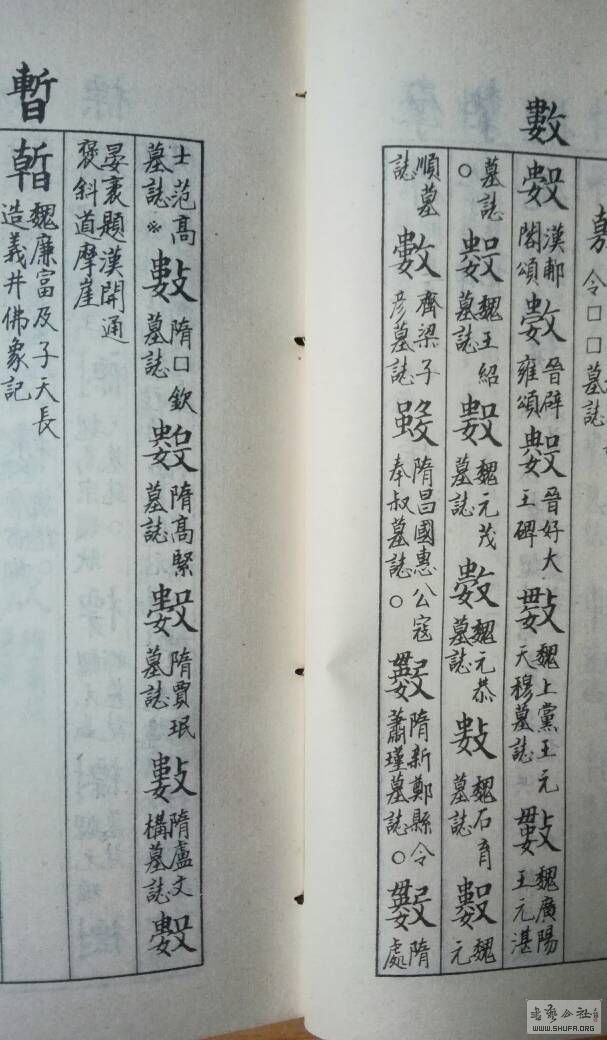 令口口墓誌
數
數漢郙閣頌數晉辟雍頌數晉好大王碑數魏上黨王元天穆墓誌數魏廣陽王元湛
墓誌○數魏王紹墓誌數魏元茂墓誌數魏元恭墓誌數魏石育墓誌數魏元
順墓誌數齊梁子彦墓誌數隋昌國惠公寇奉叔墓誌○數隋新鄭縣令蕭瑾墓誌○數隋處
士范高墓誌※數隋口欽墓誌數隋高緊墓誌數隋賈珉墓誌數隋盧文構墓誌數
晏袤題漢開通褒斜道摩崖
暫
暫魏廉富及子天長造義井佛象記
书艺公社
WWW.SHUFA.ORG